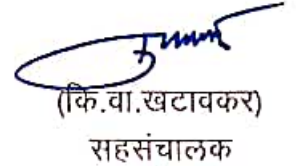 (कि.वा.खटावकर)
सहसंचालक